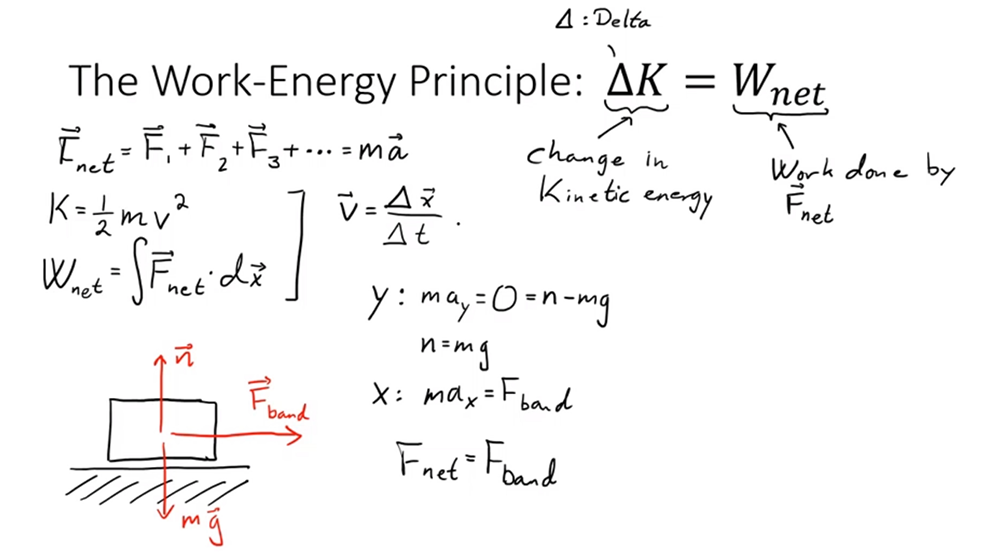 Δ : Delta
The Work-Energy Principle: ΔK = W_net
F⃗_net = F⃗_1 + F⃗_2 + F⃗_3 + ··· = ma⃗
change in
Kinetic energy
Work done by
F⃗_net
K = 1/2 m v^2
W_net = ∫ F⃗_net · dx⃗
v⃗ = Δx⃗ / Δt .
y : ma_y = 0 = n - mg
n = mg
x : ma_x = F_band
F_net = F_band
n⃗
F⃗_band
mg⃗